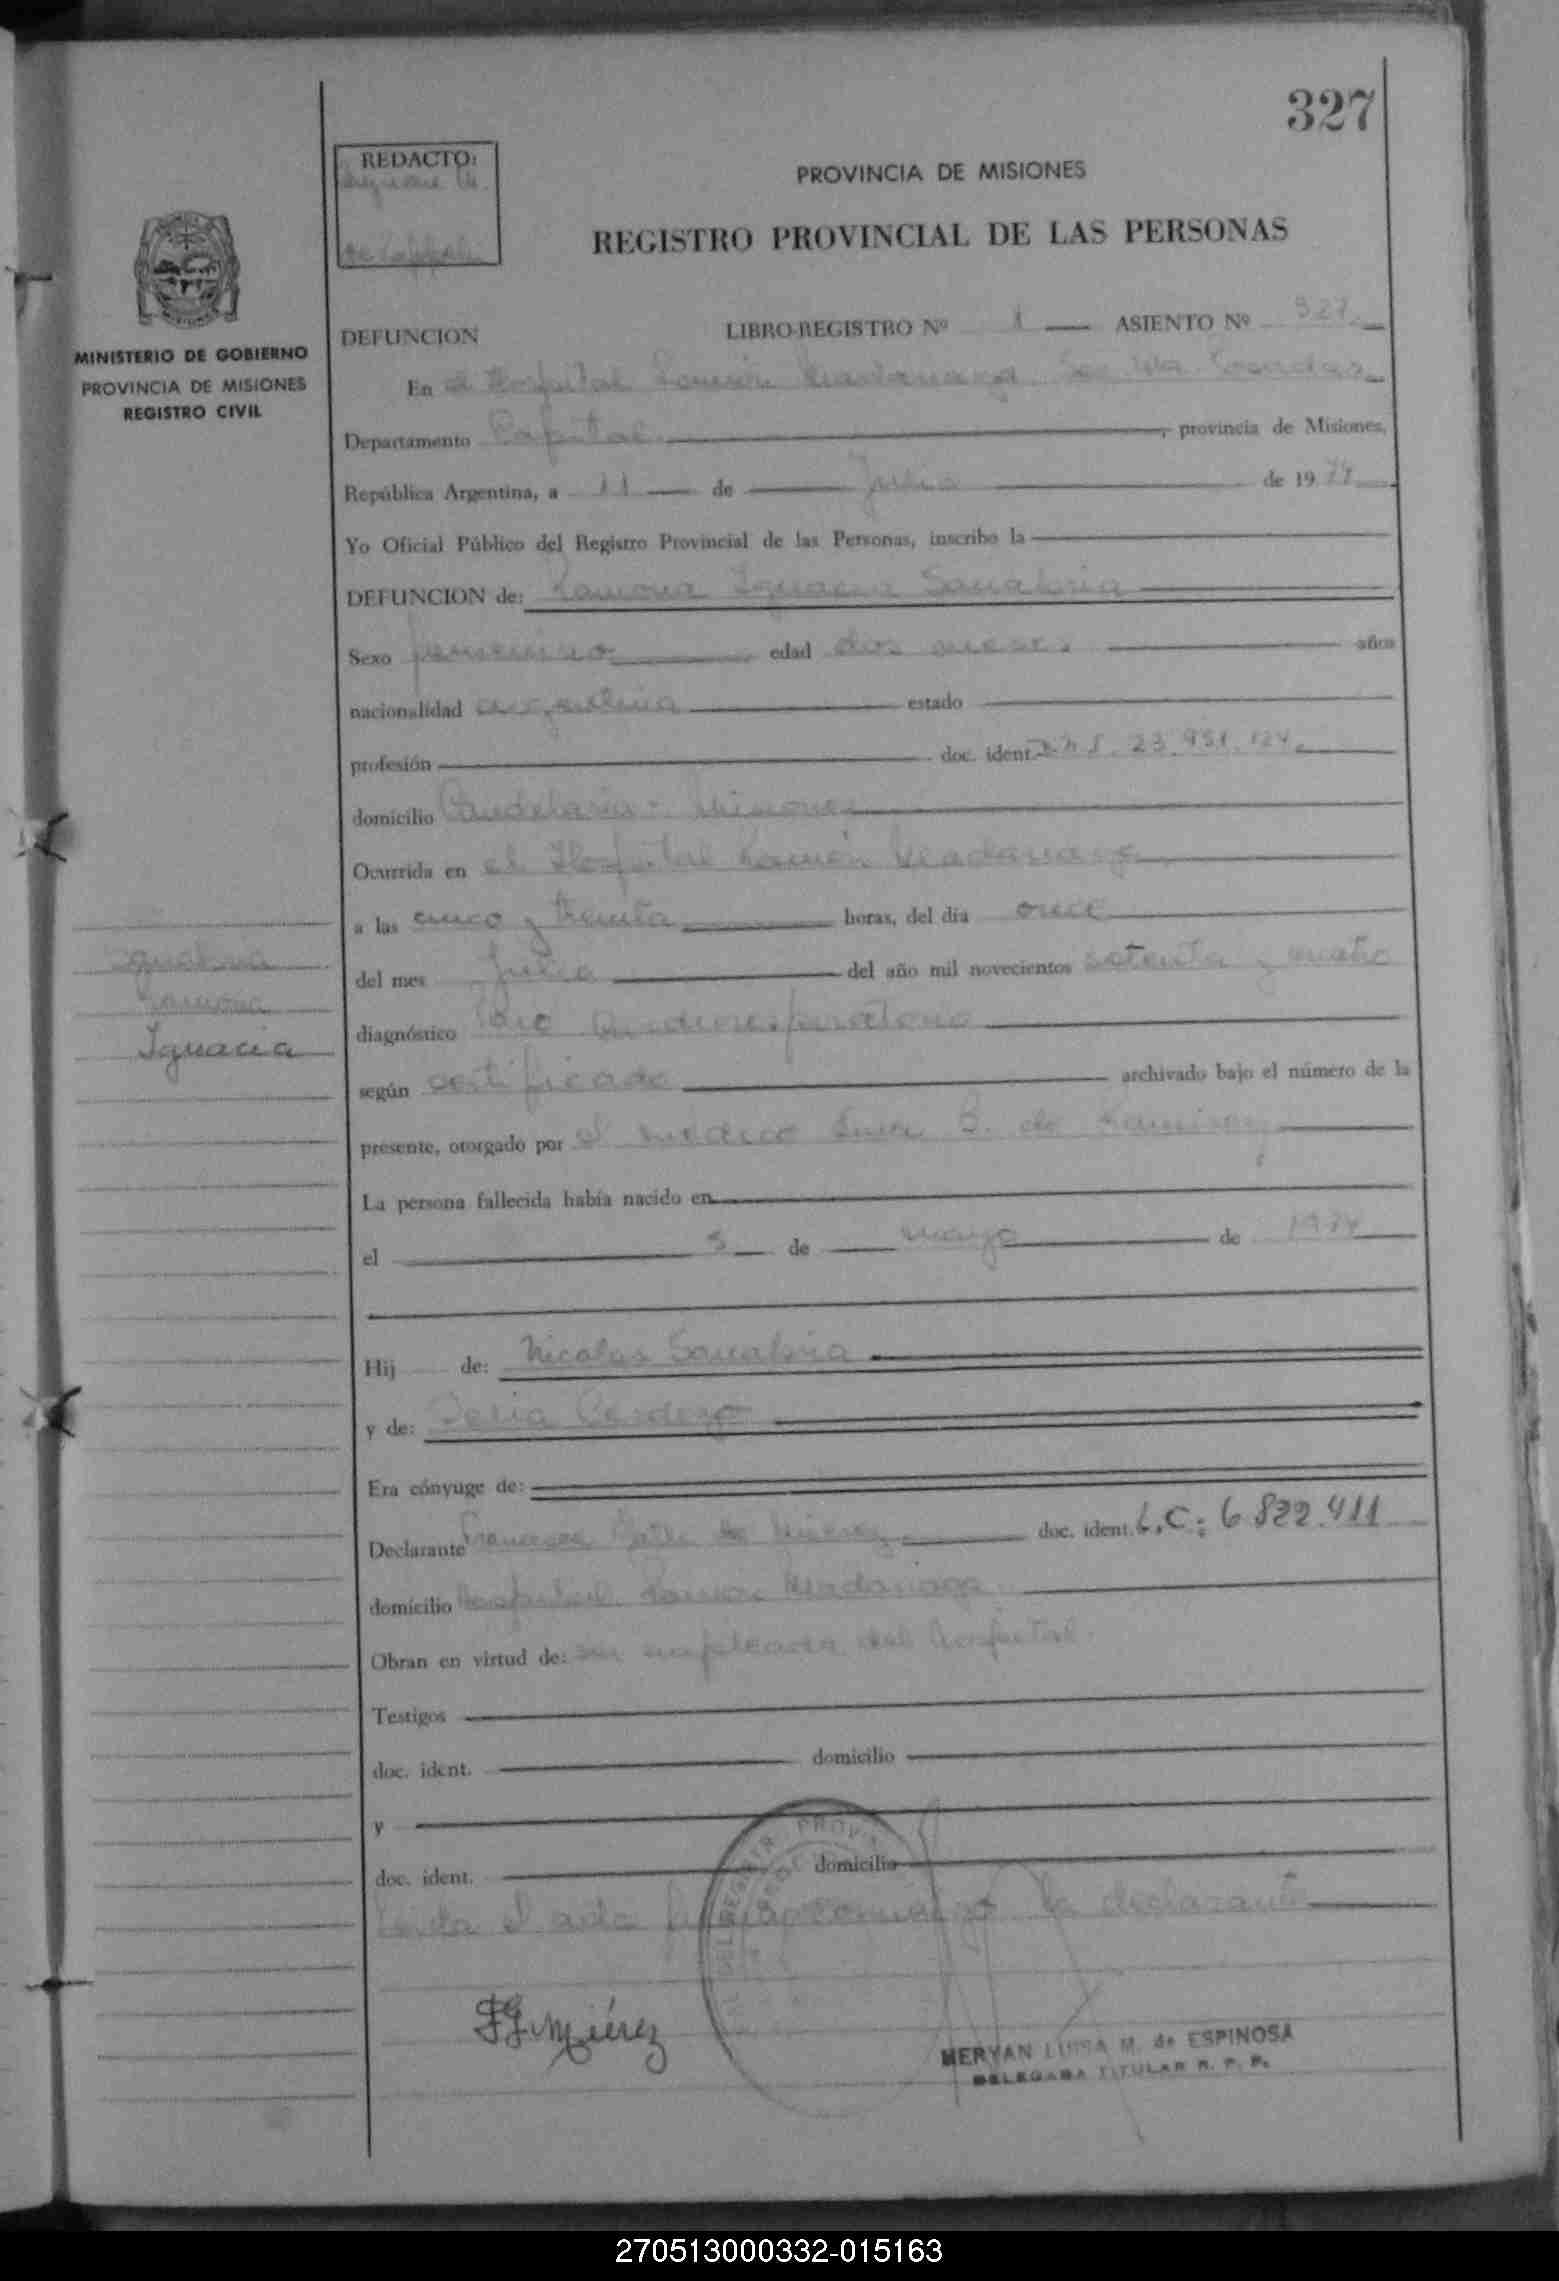 327
REDACTO:
PROVINCIA DE MISIONES
REGISTRO PROVINCIAL DE LAS PERSONAS
MINISTERIO DE GOBIERNO
PROVINCIA DE MISIONES
REGISTRO CIVIL
DEFUNCION LIBRO-REGISTRO Nº 1 ASIENTO Nº 327
En el Hospital Ramón Madariaga
Departamento Capital, provincia de Misiones,
República Argentina, a 11 de Julio de 1974
Yo Oficial Público del Registro Provincial de las Personas, inscribo la
DEFUNCION de: Ramona Ignacia Sanabria
Sexo femenino edad dos meses años
nacionalidad argentina estado
profesión doc. ident. D.N.I. 23.951.124
domicilio Candelaria - Misiones
Ocurrida en el Hospital Ramón Madariaga
a las cinco y treinta horas, del día once
del mes Julio del año mil novecientos setenta y cuatro
Sanabria
Ramona
Ignacia
diagnóstico Paro Cardiorespiratorio
según certificado archivado bajo el número de la
presente, otorgado por el médico B. de Ramirez
La persona fallecida había nacido en
el 5 de mayo de 1974
Hij de: Nicolas Sanabria
y de: Delia Cardozo
Era cónyuge de:
Declarante Francisca de Miérez doc. ident. L.C: 6.822.411
domicilio Hospital Ramón Madariaga
Obran en virtud de: ser empleada del hospital.
Testigos
doc. ident. domicilio
y
doc. ident. domicilio
Leida el acta la declarante
F G Miérez
MERYAN LUISA M. de ESPINOSA
DELEGADA TITULAR R. P. P.
270513000332-015163